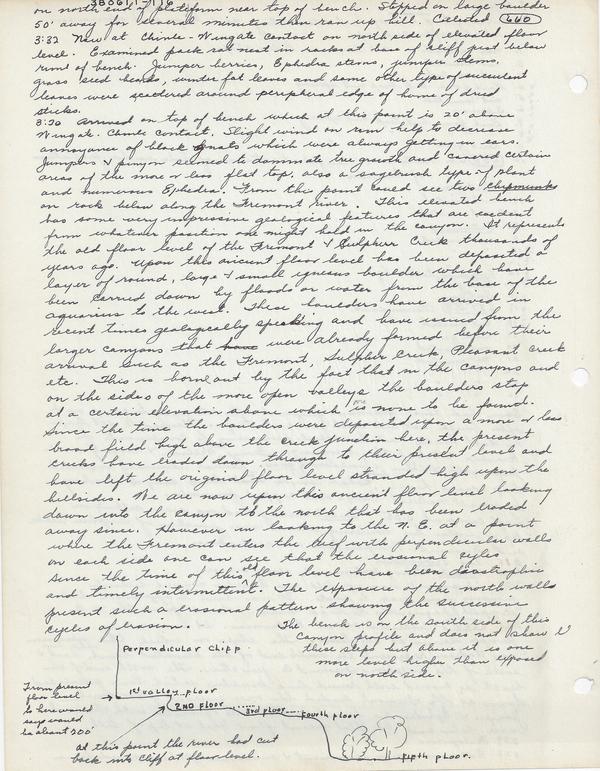 on north east platform near top of bench. Stopped on large boulder
50' away for several minutes then ran up hill. Collected 640
3:32 Now at Chinle-Wingate contact on north side of elevated floor
level. Examined pack rat nest in rocks at base of cliff just below
rim of bench. Juniper berries, Ephedra stems, juniper stems,
grass seed heads, winter fat leaves and some other type of succulent
leaves were scattered around peripheral edge of home of dried
sticks.
3:50 Arrived on top of bench which at this point is 20' above
Wingate-Chinle contact. Slight wind on rim help to decrease
annoyance of black gnats which were always getting in ears.
Junipers & pinyon seemed to dominate tree growth and covered certain
areas of the more or less flat top. also a sagebrush type of plant
and numerous Ephedra. From this point could see two chipmunks
on rock below along the Fremont river. This elevated bench
has some very impressive geological features that are evident
from whatever position one might hold in the canyon. It represents
the old floor level of the Fremont & Sulphur Creek thousands of
years ago. Upon this ancient floor level has been deposited a
layer of round, large & small igneous boulder which have
been carried down by floods or water from the base of the
aquarius to the west. These boulders have arrived in
recent times geologically speaking and have issued from the
larger canyons that have were already formed before their
arrival such as the Fremont, Sulphur Creek, Pleasant Creek
etc. This is born out by the fact that in the canyons and
on the sides of the more open valleys the boulders stop
at a certain elevation above which is none to be found.
Since the time the boulders were deposited upon a more or less
broad field high above the creek junction here, the present
creeks have eroded down through to their present level and
have left the original floor level stranded high upon the
hillsides. We are now upon this ancient floor level looking
down into the canyon to the north that has been eroded
away since. However in looking to the N.E. at a point
where the Fremont enters the reef with perpendicular walls
on each side one can see that the erosional cycles
since the time of this old floor level have been deastrophic
and timely intermittent. The exposure of the north walls
present such a erosional pattern showing the successive
cycles of erosion.
The bench is on the south side of this
canyon profile and does not show
these steps but above it is one
more level higher than exposed
on north side.
Perpendicular Cliff
From present
floor level
to here would
say would
be about 200'
1st valley floor
2ND floor
3rd floor
fourth floor
fifth floor.
at this point the river had cut
back into cliff at floor level.